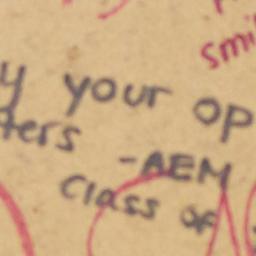 smi
y your op
ters
-AEM
Class of